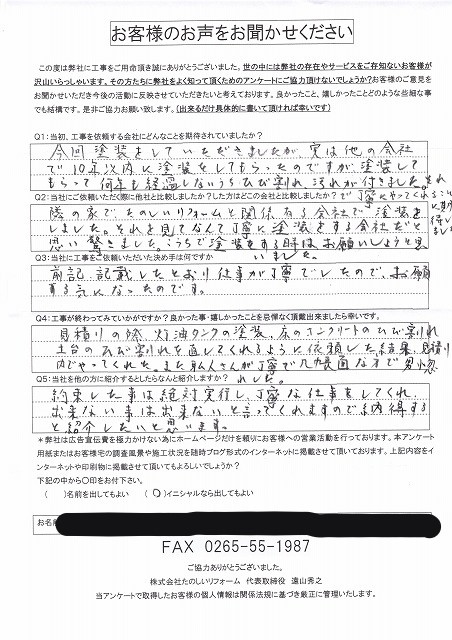 お客様のお声をお聞かせください
この度は弊社に工事をご用命頂き誠にありがとうございました。世の中には弊社の存在やサービスをご存知ないお客様が
沢山いらっしゃいます。その方たちに弊社をよく知って頂くためのアンケートにご協力頂けないでしょうか?お客様のご意見を
お聞かせいただき今後の活動に反映させていただきたいと考えております。良かったこと、嬉しかったことどのような些細な事
でも結構です。是非ご協力お願い致します。(出来るだけ具体的に書いて頂ければ幸いです)
Q1:当初、工事を依頼する会社にどんなことを期待されていましたか?
今回塗装をしていただきましたが実は他の会社
で10年以内に塗装をしてもらったのですが塗装して
もらって何年も経過しないうちひび割れ、汚れが付きました。それ
で丁寧にやってくれることに期待しました
Q2:当社にご依頼いただく際に他社と比較しましたか?した方はどこの会社と比較しましたか?
隣の家でたのしいリフォームと関係ある会社で塗装を
しました。それを見てなんて丁寧に塗装をする会社だと
思い驚きました。うちで塗装をする時はお願いしようと思
いました。
Q3:当社に工事をご依頼いただいた決め手は何ですか
前記記載したとおり仕事が丁寧でしたので、お願
する気になったのです。
Q4:工事が終わってみていかがですか?良かった事・嬉しかったことを忌憚なく頂戴出来ましたら幸いです。
見積りの際、灯油タンクの塗装、床のコンクリートのひび割れ
土台のひび割れを直してくれるように依頼した結果、見積り
内でやってくれた。また職人さんが丁寧で几帳面な方で
れました。
Q5:当社を他の方に紹介するとしたらなんと紹介しますか?
約束した事は絶対実行し、丁寧な仕事をしてくれ
出来ない事は出来ないと言ってくれますので納得する
と紹介したいと思います。
*弊社は広告宣伝費を極力かけない為にホームページだけを頼りにお客様への営業活動を行っております。本アンケート
用紙またはお客様宅の調査風景や施工状況を随時ブログ形式のインターネットに掲載させて頂いております。上記内容をイ
ンターネットや印刷物に掲載させて頂いてもよろしいでしょうか?
下記の中から〇印をお付下さい。
( )名前を出してもよい (〇)イニシャルなら出してもよい
お名前
FAX 0265-55-1987
ご協力ありがとうございました。
株式会社たのしいリフォーム 代表取締役 遠山秀之
当アンケートで取得したお客様の個人情報は関係法規に基づき厳正に管理いたします。